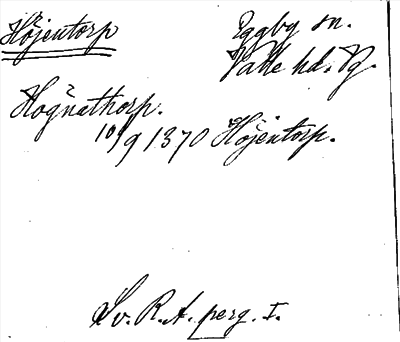 Höjentorp
Eggby sn.
Valle hd. Vg.
Hognathorp.
10/9 1370 Höjentorp.
Sv. R. A. perg. I.